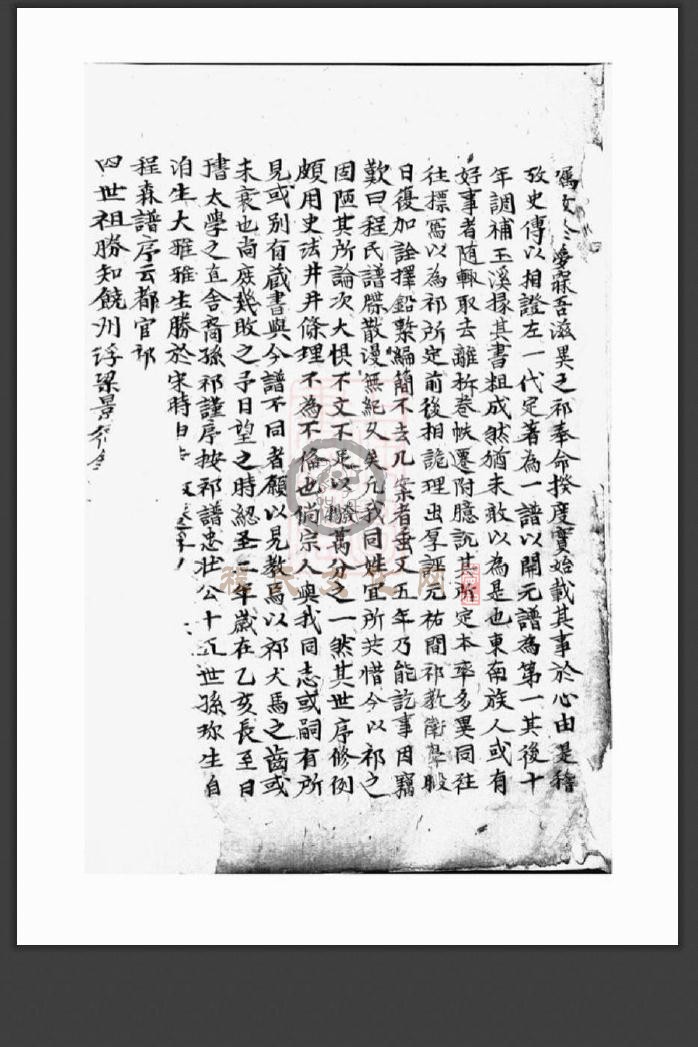 寐吾滋異之祁奉命揆度實始載其事於心由是稽
攷史傳以相證左一代定著為一譜以開元譜為第一其後十
年調補玉溪掾其書粗成然猶未敢以為是也東南族人或有
好事者随輙取去離柝卷帙遷附臆説其所定本率多異同往
往標寫以為祁所定前後相詭理出厚誣元祐間祁教衛
日復加詮擇鉛槧編簡不去几案者垂又五年乃能訖事因竊
歎曰程氏譜牒散漫無紀久矣凢我同姓宜所共惜今以祁之
固陋其所論次大惧不文不足以發萬分之一然其世序修例
頗用史法井井條理不為不偹也倘宗人與我同志或嗣有所
見或别有蔵書與今譜不同者願以見教焉以祁犬馬之齒或
未衰也尚庶幾敗之予日望之時紹圣二年歲在乙亥長至日
太學之直舎裔孫祁謹序按祁譜忠壮公十五世孫珎生自
洎生大雅雅生勝於宋時
程森譜序云都官祁
四世祖勝知饒州浮梁景